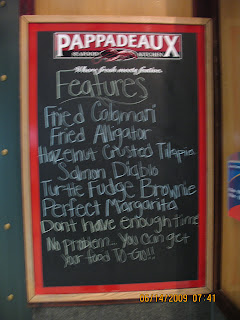 PAPPADEAUX
SEAFOOD KITCHEN
Where fresh meets festive.
Features
Fried Calamari
Fried Alligator
Hazelnut Crusted Tilapia
Salmon Diablo
Turtle Fudge Brownie
Perfect Margarita
Dont have enough time
No problem... You can get
your food TO-GO!!
06/14/2009 07:41